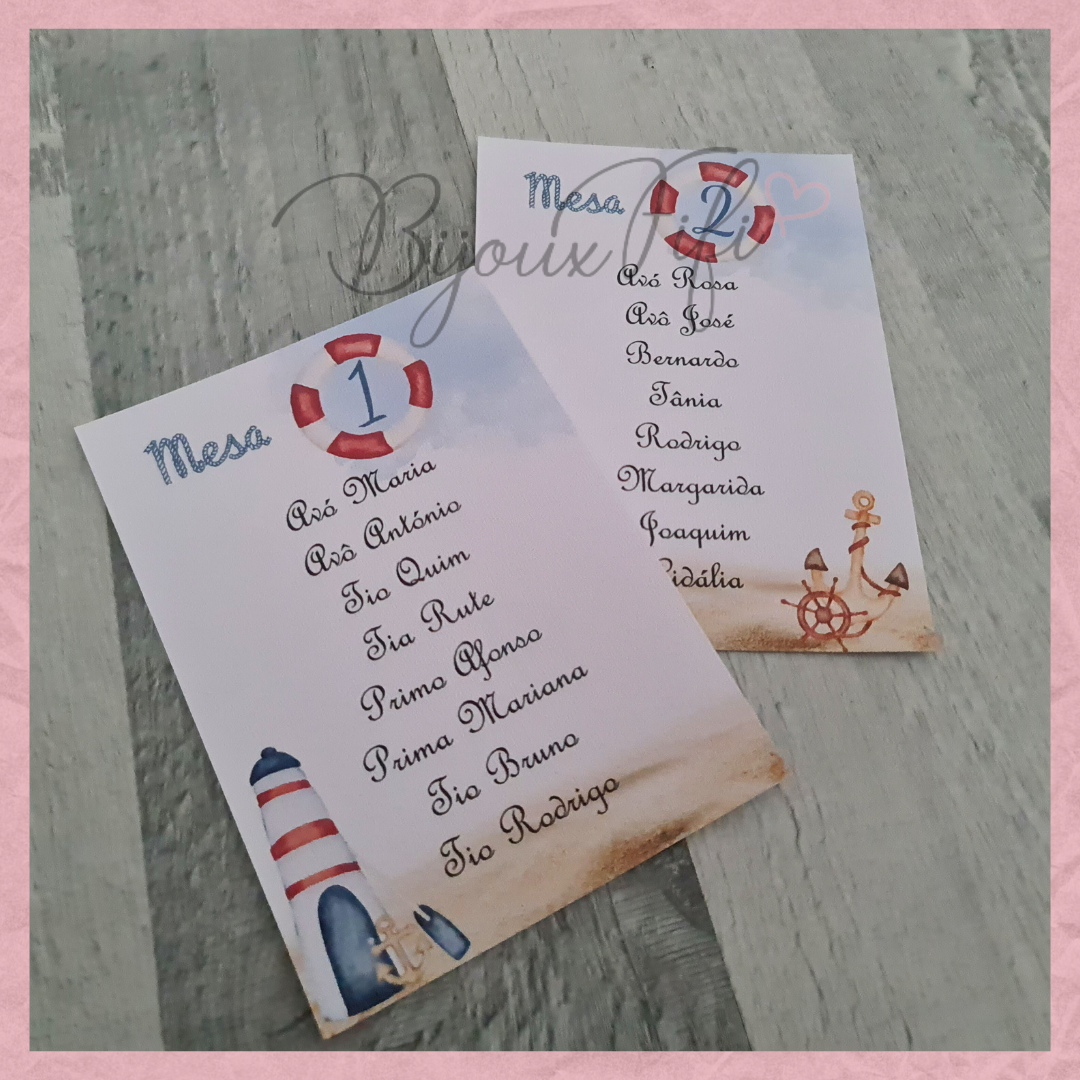 Bijoux Fifi
Mesa 1
Avó Maria
Avô António
Tio Quim
Tia Rute
Primo Afonso
Prima Mariana
Tio Bruno
Tio Rodrigo
Mesa 2
Avó Rosa
Avô José
Bernardo
Tânia
Rodrigo
Margarida
Joaquim